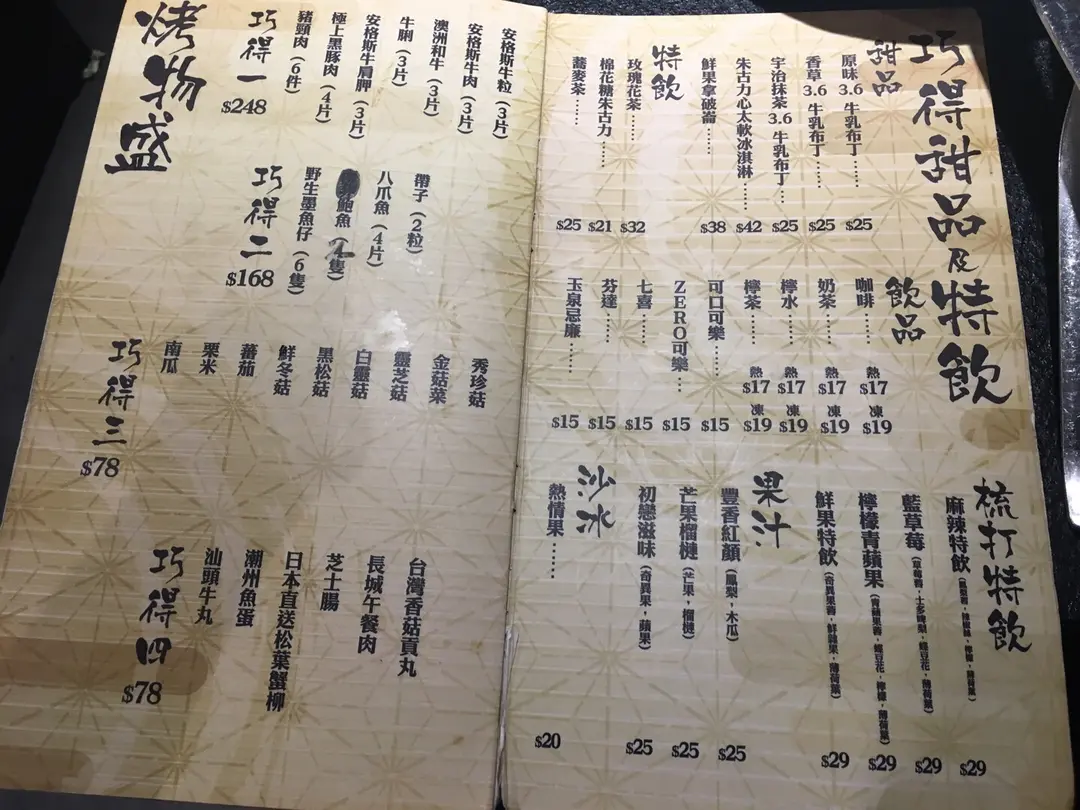 巧得甜品及特飲
甜品
原味 3.6 牛乳布丁...... $25
香草 3.6 牛乳布丁...... $25
宇治抹茶 3.6 牛乳布丁 $25
朱古力心太軟冰淇淋...... $42
鮮果拿破崙...... $38
特飲
玫瑰花茶...... $32
棉花糖朱古力... $21
蕎麥茶...... $25
飲品
咖啡...... 熱 $17 凍 $19
奶茶...... 熱 $17 凍 $19
檸水...... 熱 $17 凍 $19
檸茶...... 熱 $17 凍 $19
可口可樂...... $15
ZERO可樂... $15
七喜...... $15
芬達...... $15
玉泉忌廉...... $15
梳打特飲
麻辣特飲 $29
藍草莓 $29
檸檬青蘋果 $29
鮮果特飲 $29
果汁
豐香紅顏（鳳梨，木瓜） $25
芒果榴槤（芒果，榴槤） $25
初戀滋味（奇異果，蘋果） $25
沙冰
熱情果...... $20
烤物盛
巧得一 $248
安格斯牛粒（3片）
安格斯牛肉（3片）
澳洲和牛（3片）
牛脷（3片）
安格斯牛肩胛（3片）
極上黑豚肉（4片）
豬頸肉（6件）
巧得二 $168
帶子（2粒）
八爪魚（4片）
鮑魚（隻）
野生墨魚仔（6隻）
巧得三 $78
秀珍菇
金菇菜
靈芝菇
白靈菇
黑松菇
鮮冬菇
蕃茄
栗米
南瓜
巧得四 $78
台灣香菇貢丸
長城午餐肉
芝士腸
日本直送松葉蟹柳
潮州魚蛋
汕頭牛丸